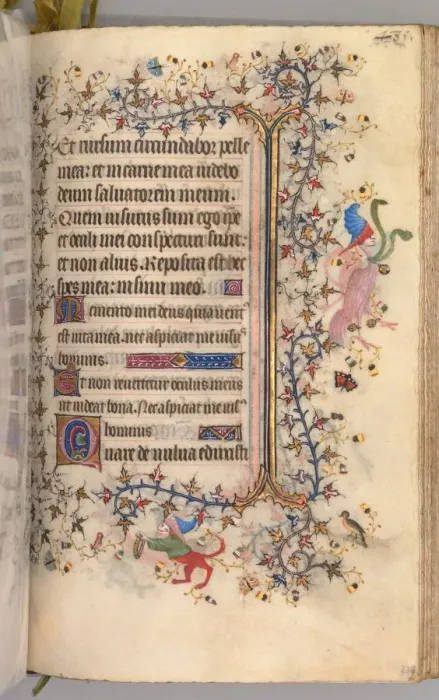 Et rursum circundabor pelle
mea: et in carne mea videbo
deum saluatorem meum.
Quem uisurus sum ego ipe
et oculi mei conspecturi sunt:
et non alius. Reposita est hec
spes mea: in sinu meo.
Memento mei deus quia uent᷒
est uita mea. nec aspiciat me uisu᷒
hominis.
Et non reuertetur oculus meus
ut uideat bona. Nec aspiciat me uis᷒
hominis
Quare de uulua eduxisti